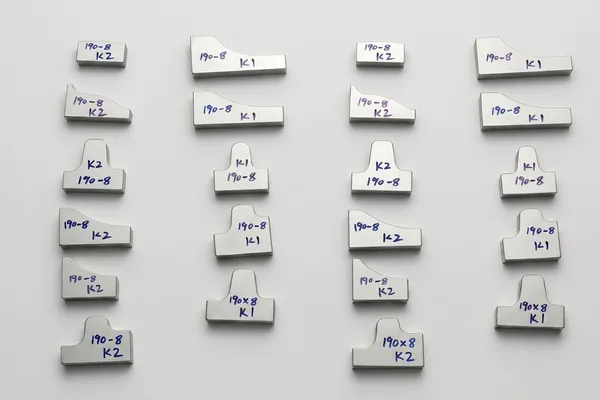 190-8
K2
190-8
K1
190-8
K2
190-8
K1
190-8
K2
190-8
K1
190-8
K2
190-8
K1
K2
190-8
K1
190-8
K2
190-8
K1
190-8
190-8
K2
190-8
K1
190-8
K2
190-8
K1
190-8
K2
190x8
K1
190-8
K2
190x8
K1
190-8
K2
190x8
K2